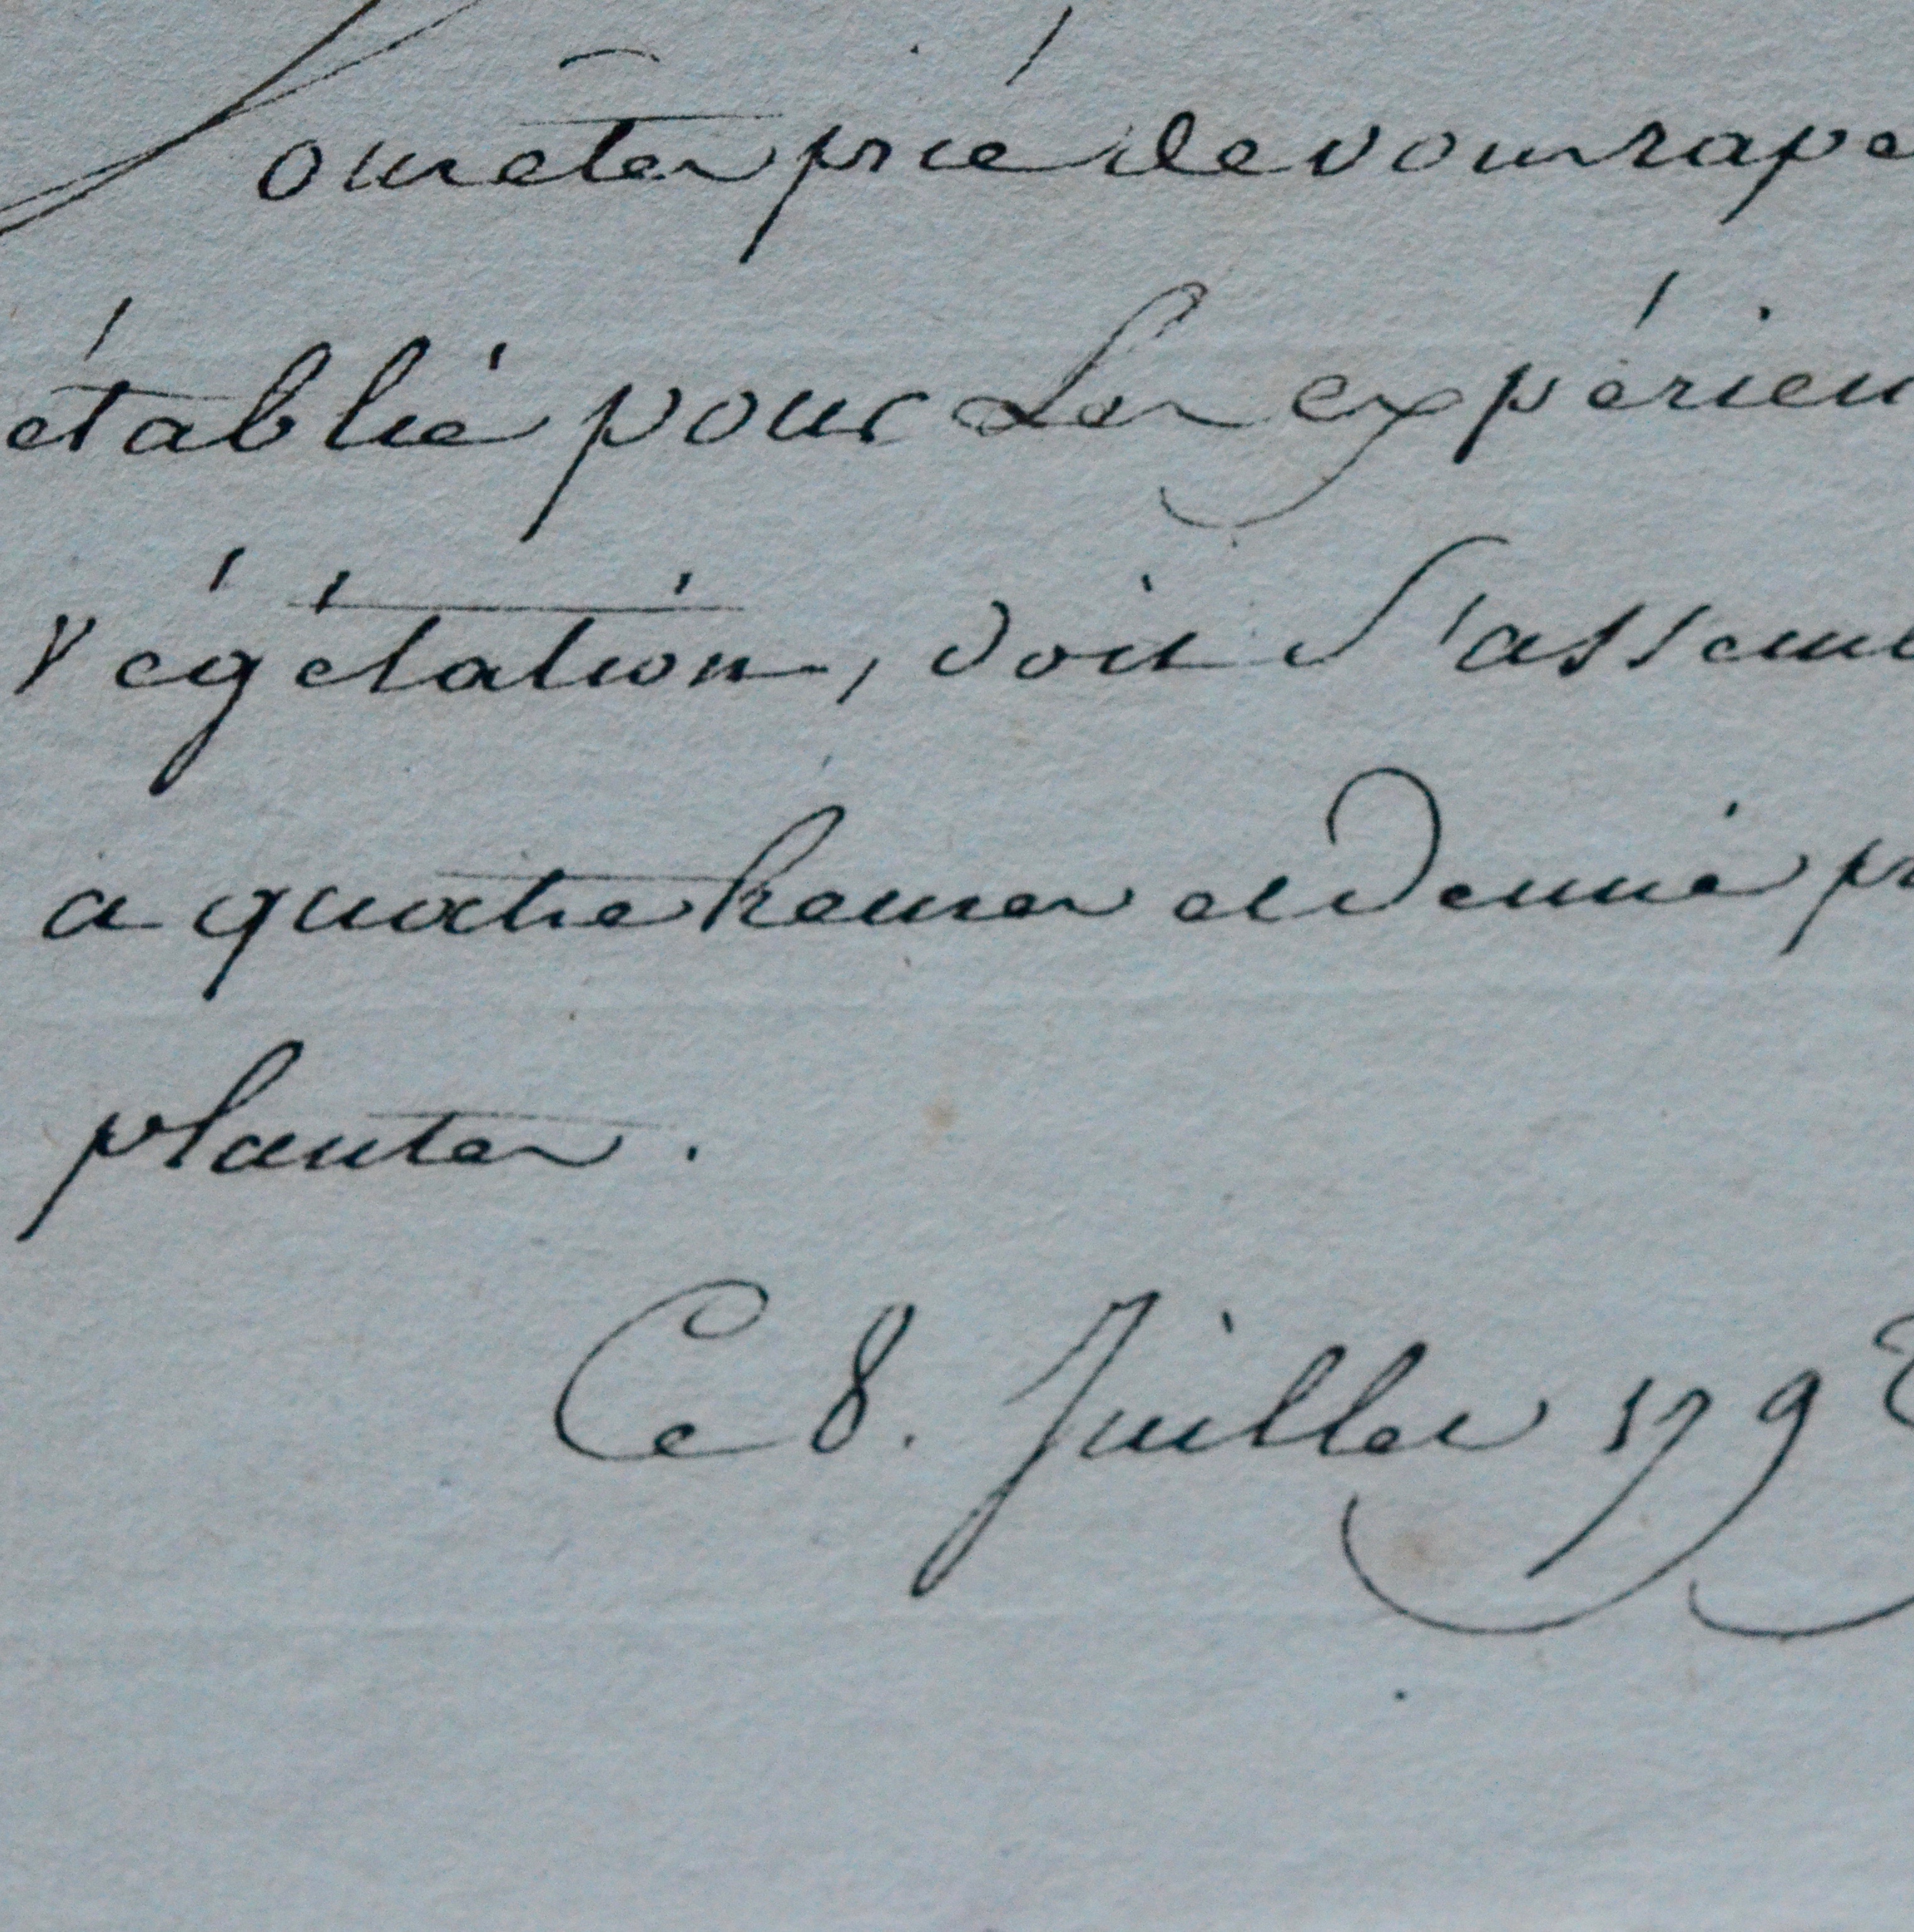 Vous êtes prié de vous rape
établie pour Les expérien
végétation, doit S'assem
a quatre heures et Demie pr
plantes.
Ce 8. Juillet 179